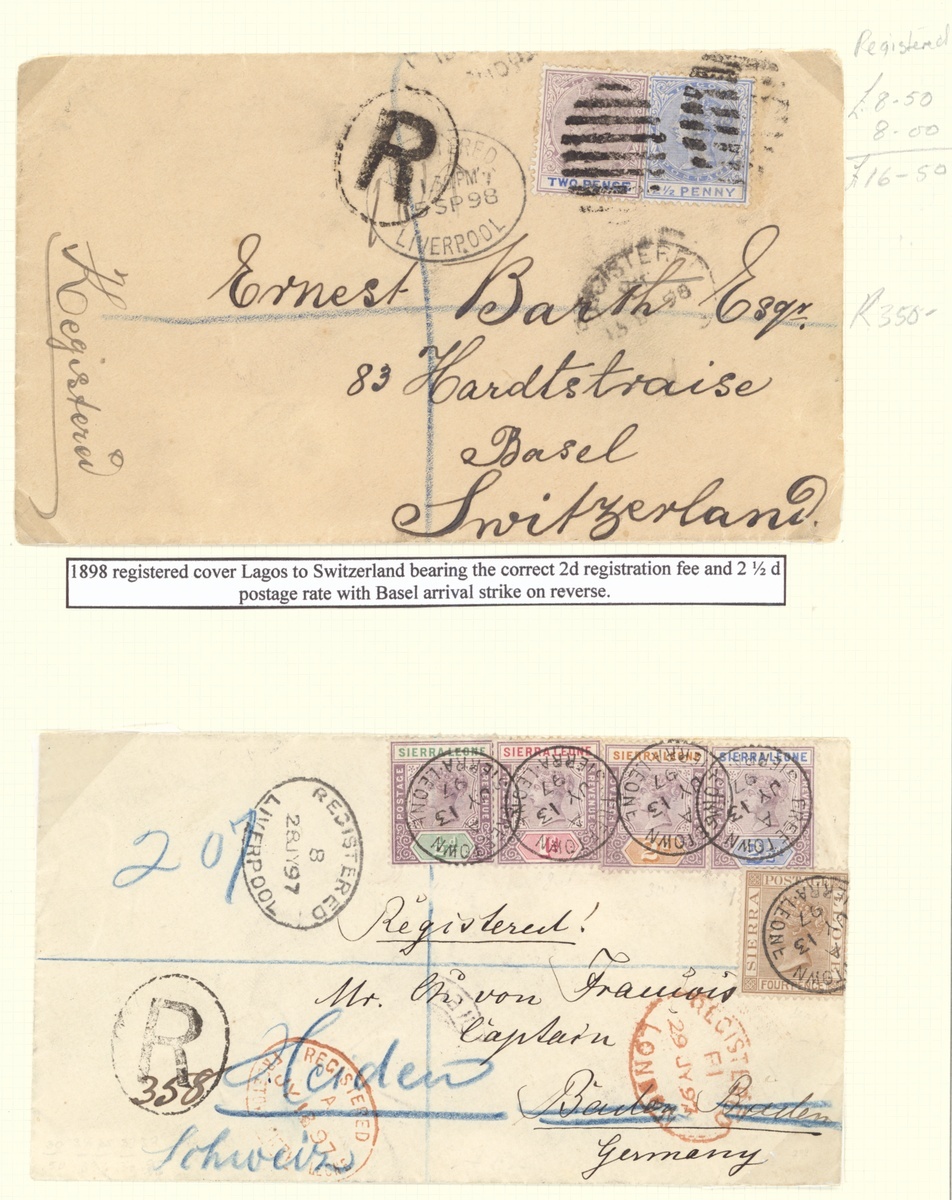 Registered
£8-50
8-00
£16-50
R350-
TWO PENCE
½ PENNY
R
15 SP 98
LIVERPOOL
REGISTERED
98
Ernest Barth Esqr.
83 Hardtstraise
Basel
Switzerland.
Registerd
1898 registered cover Lagos to Switzerland bearing the correct 2d registration fee and 2 ½ d
postage rate with Basel arrival strike on reverse.
SIERRA LEONE
SIERRA LEONE
SIERRA LEONE
SIERRA LEONE
POSTAGE
FREETOWN
A
JY 13
97
SIERRA LEONE
FREETOWN
A
JY 13
97
SIERRA LEONE
FREETOWN
A
JY 13
97
SIERRA LEONE
FREETOWN
A
JY 13
97
SIERRA LEONE
SIERRA
FOUR
207
REGISTERED
8
28 JY 97
LIVERPOOL
Registered!
Mr. von François
Captain
R
358
Heiden
Schweiz
REGISTERED
A
JL 13 97
REGISTERED
29 JY 97
LONDON
Baden Baden
Germany